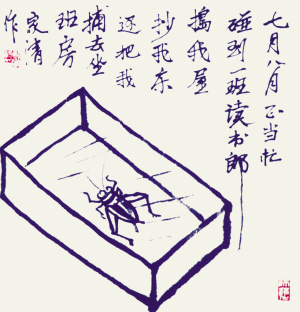 七月八月正当忙
碰到一班读书郎
捣我屋
抄我家
还把我
捕去坐
班房
定清
作